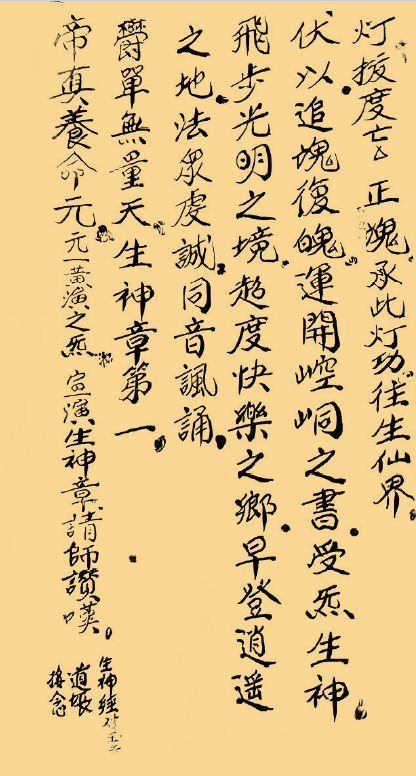 灯拔度亡〻正魂承此灯功徃生仙界
伏以追魂復魄運開崆峒之書受炁生神
飛步光明之境超度快樂之鄉早登逍遥
之地法眾虔誠同音諷誦
欝單無量天生神章第一
帝真養命元元一黃演之炁宣演生神章請師讚嘆
生神經
道場
接念